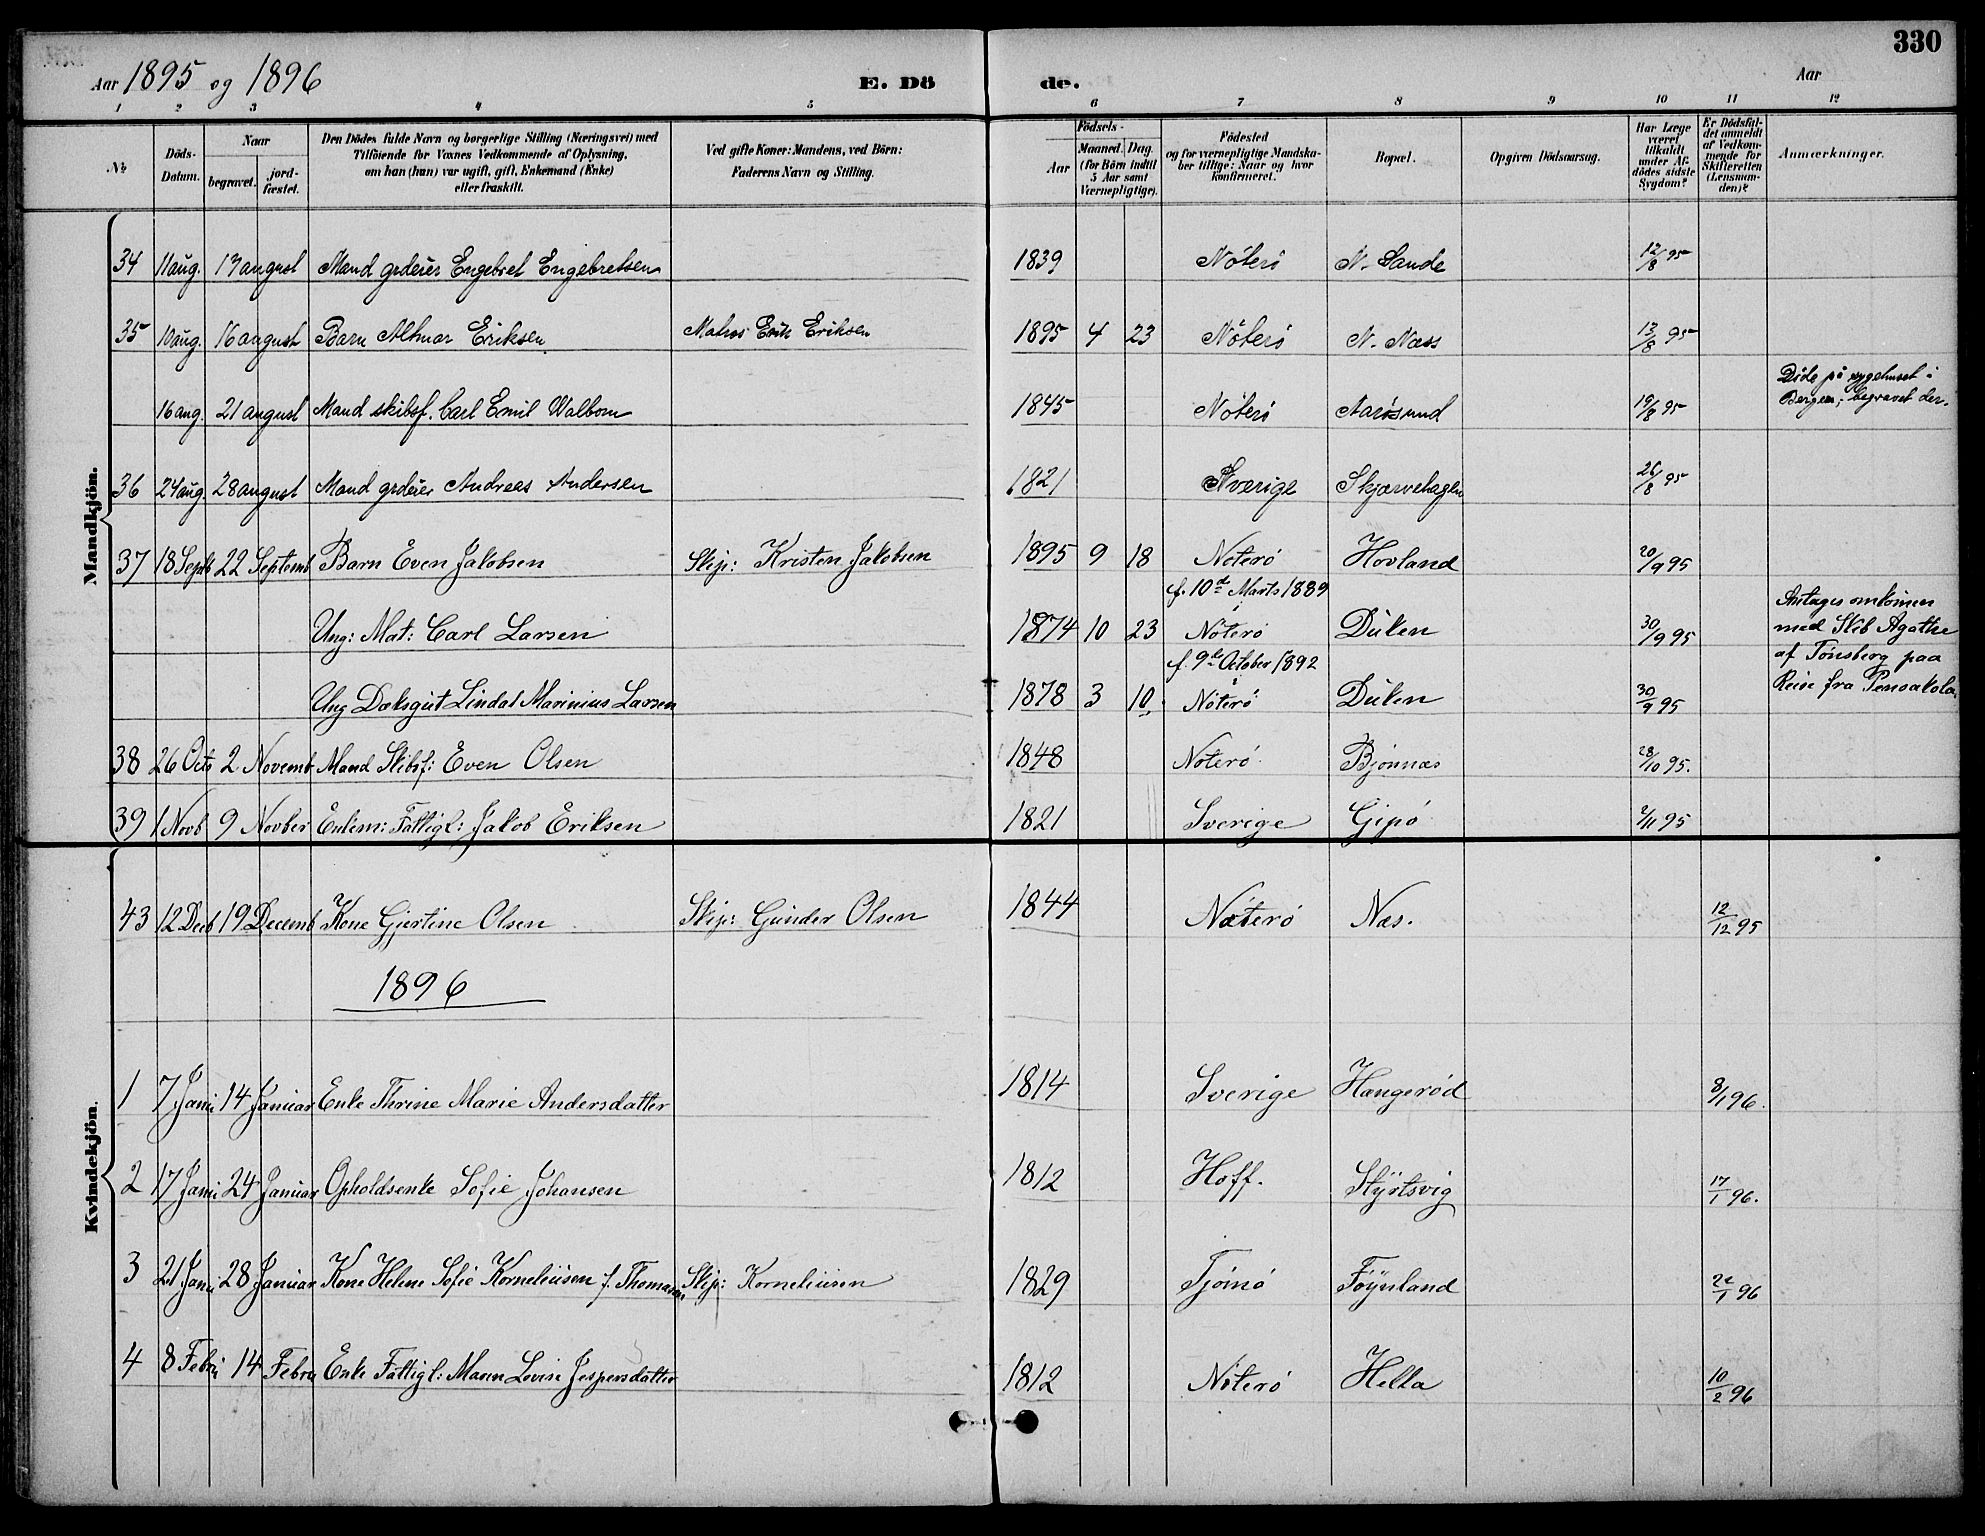 330
Aar 1895 og 1896 E. Dö de. Aar
1 2 3 4 5 6 7 8 9 10 11 12
№
Döds-Datum.
Naar
begravet. jordfæstet.
Den Dödes fulde Navn og borgerlige Stilling (Næringsvei) med
Tilföiende for Voxnes Vedkommende af Oplysning,
om han (hun) var ugift, gift, Enkemand (Enke)
eller fraskilt.
Ved gifte Koner: Mandens, ved Börn:
Faderens Navn og Stilling.
Födsels-
Aar
Maaned. Dag.
(for Börn indtil
5 Aar samt
Værnepligtige).
Födested
og for værnepligtige Mandskaber tillige: Naar og hvor
konfirmeret.
Bopæl.
Opgiven Dödsaarsag.
Har Læge
været
tilkaldt
under Afdödes sidste
Sygdom?
Er Dödsfaldet anmeldt
af Vedkommende for
Skifteretten
(Lensmanden)?
Anmærkninger.
Mandkjön.
34 11 aug. 17 august Mand grdeier Engebret Engebretsen 1839 Nöterö N. Sande 12/8 95
35 10 aug. 16 august Barn Altmar Eriksen Matros Erik Eriksen 1895 4 23 Nöterö N. Næss 13/8 95
16 aug. 21 august Mand skibsf. Carl Emil Walbom 1845 Nöterö Aarösund 19/8 95 Döde på sygehuset i
Bergen; begravet der.
36 24 aug. 28 august Mand grdeier Andreas Andersen 1821 Sverige Skjærvehagen 26/8 95
37 18 Septb 22 Septemb Barn Even Jakobsen Skip: Kristen Jakobsen 1895 9 18 Noterö Hovland 20/9 95
f. 10de Marts 1889
i
Ung: Mat: Carl Larsen 1874 10 23 Nöterö Düken 30/9 95 Antages omkomen
med Skib Agathe
af Tönsberg paa
Reise fra Pensakola.
f. 9de October 1892
i
Ung Dæksgut Lindal Marinius Larsen 1878 3 10. Nöterö Düken 30/9 95
38 26 Octb 2 Novemb Mand Skibsf: Even Olsen 1848 Noterö Bjönnæs 28/10 95.
39 1 Novb 9 Novber Enkem: Fattigl: Jakob Eriksen 1821 Sverige Gipö 2/11 95
Kvindekjön.
43 12 Decb 19 Decemb Kone Gjertine Olsen Skip: Gunder Olsen 1844 Nöterö Næs. 12/12 95
1896
1 7 Janu 14 Januar Enke Thrine Marie Andersdatter 1814 Sverige Haugeröd 8/1 96.
2 17 Janu 24 Januar Opholdsenke Sofie Johansen 1812 Hoff. Styrtsvig 17/1 96.
3 21 Janu 28 Januar Kone Helene Sofie Korneliusen f. Thomasen Skip: Korneliusen 1829 Tjömö Föÿnland 22/1 96
4 8 Febru 14 Febru Enke Fattigl: Maren Lovise Jespersdatter 1812 Nöterö Hella 10/2 96